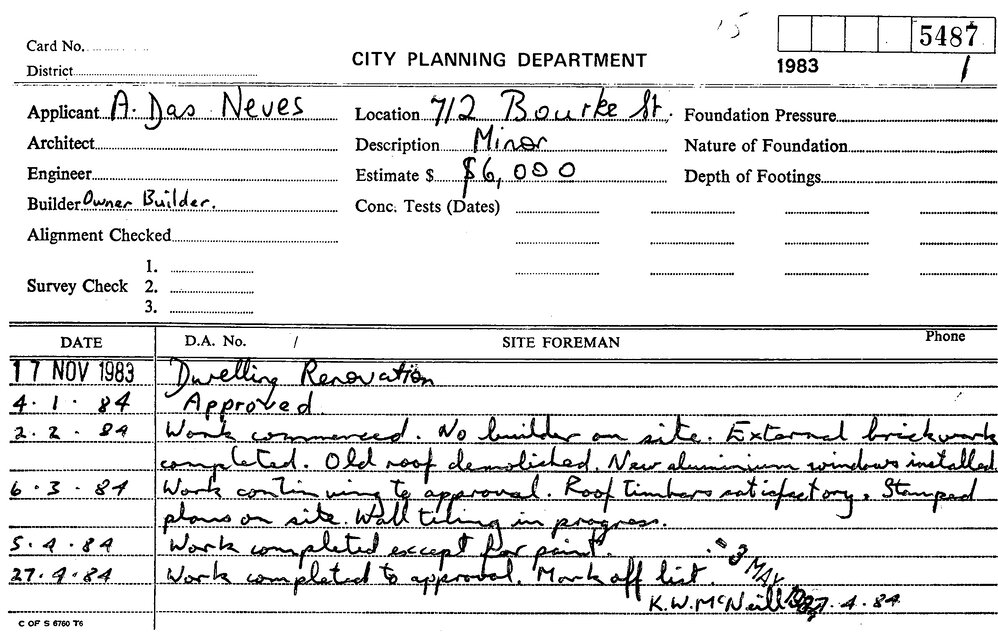 15
Card No.
5487
CITY PLANNING DEPARTMENT
1983
1
District
Applicant A. Das Neves
Location 712 Bourke St.
Foundation Pressure
Architect
Description Minor
Nature of Foundation
Engineer
Estimate $ $6,000
Depth of Footings
Builder Owner Builder.
Conc. Tests (Dates)
Alignment Checked
1.
Survey Check 2.
3.
DATE D.A. No. / SITE FOREMAN Phone
17 NOV 1983 Dwelling Renovation
4.1.84 Approved
2.2.84 Work commenced. No builder on site. External brickwork
completed. Old roof demolished. New aluminium windows installed
6.3.84 Work continuing to approval. Roof timbers satisfactory. Stamped
plans on site. Wall tiling in progress.
5.4.84 Work completed except for paint.
27.4.84 Work completed to approval. Mark off list.
3 MAY
K.W. McNeill 27.4.84
C OF S 6760 T6